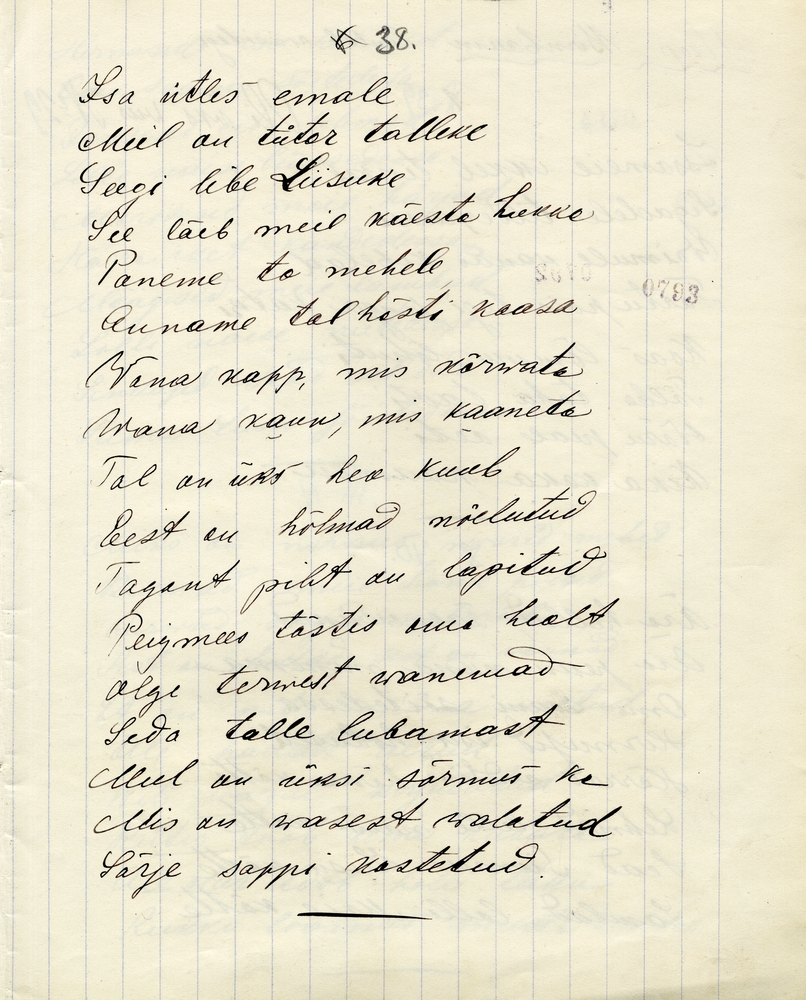 38.
Isa ütles emale
Meil on tütar talleke
Seegi libe Liisuke
See läeb meil käesta hukka
Paneme ta mehele
Anname tal hästi kaasa
0793
Wana kapp, mis kõrwata
Wana kann, mis kaaneta
Tal on üks hea kuub
Eest on hõlmad nõelutud
Tagant piht on lapitud
Peigmees tõstis oma healt
Olge terwest wanemad
Seda talle lubamast
Meil on üksi sõrmus ka
Mis on wasest walatud
Särje sappi kastetud.